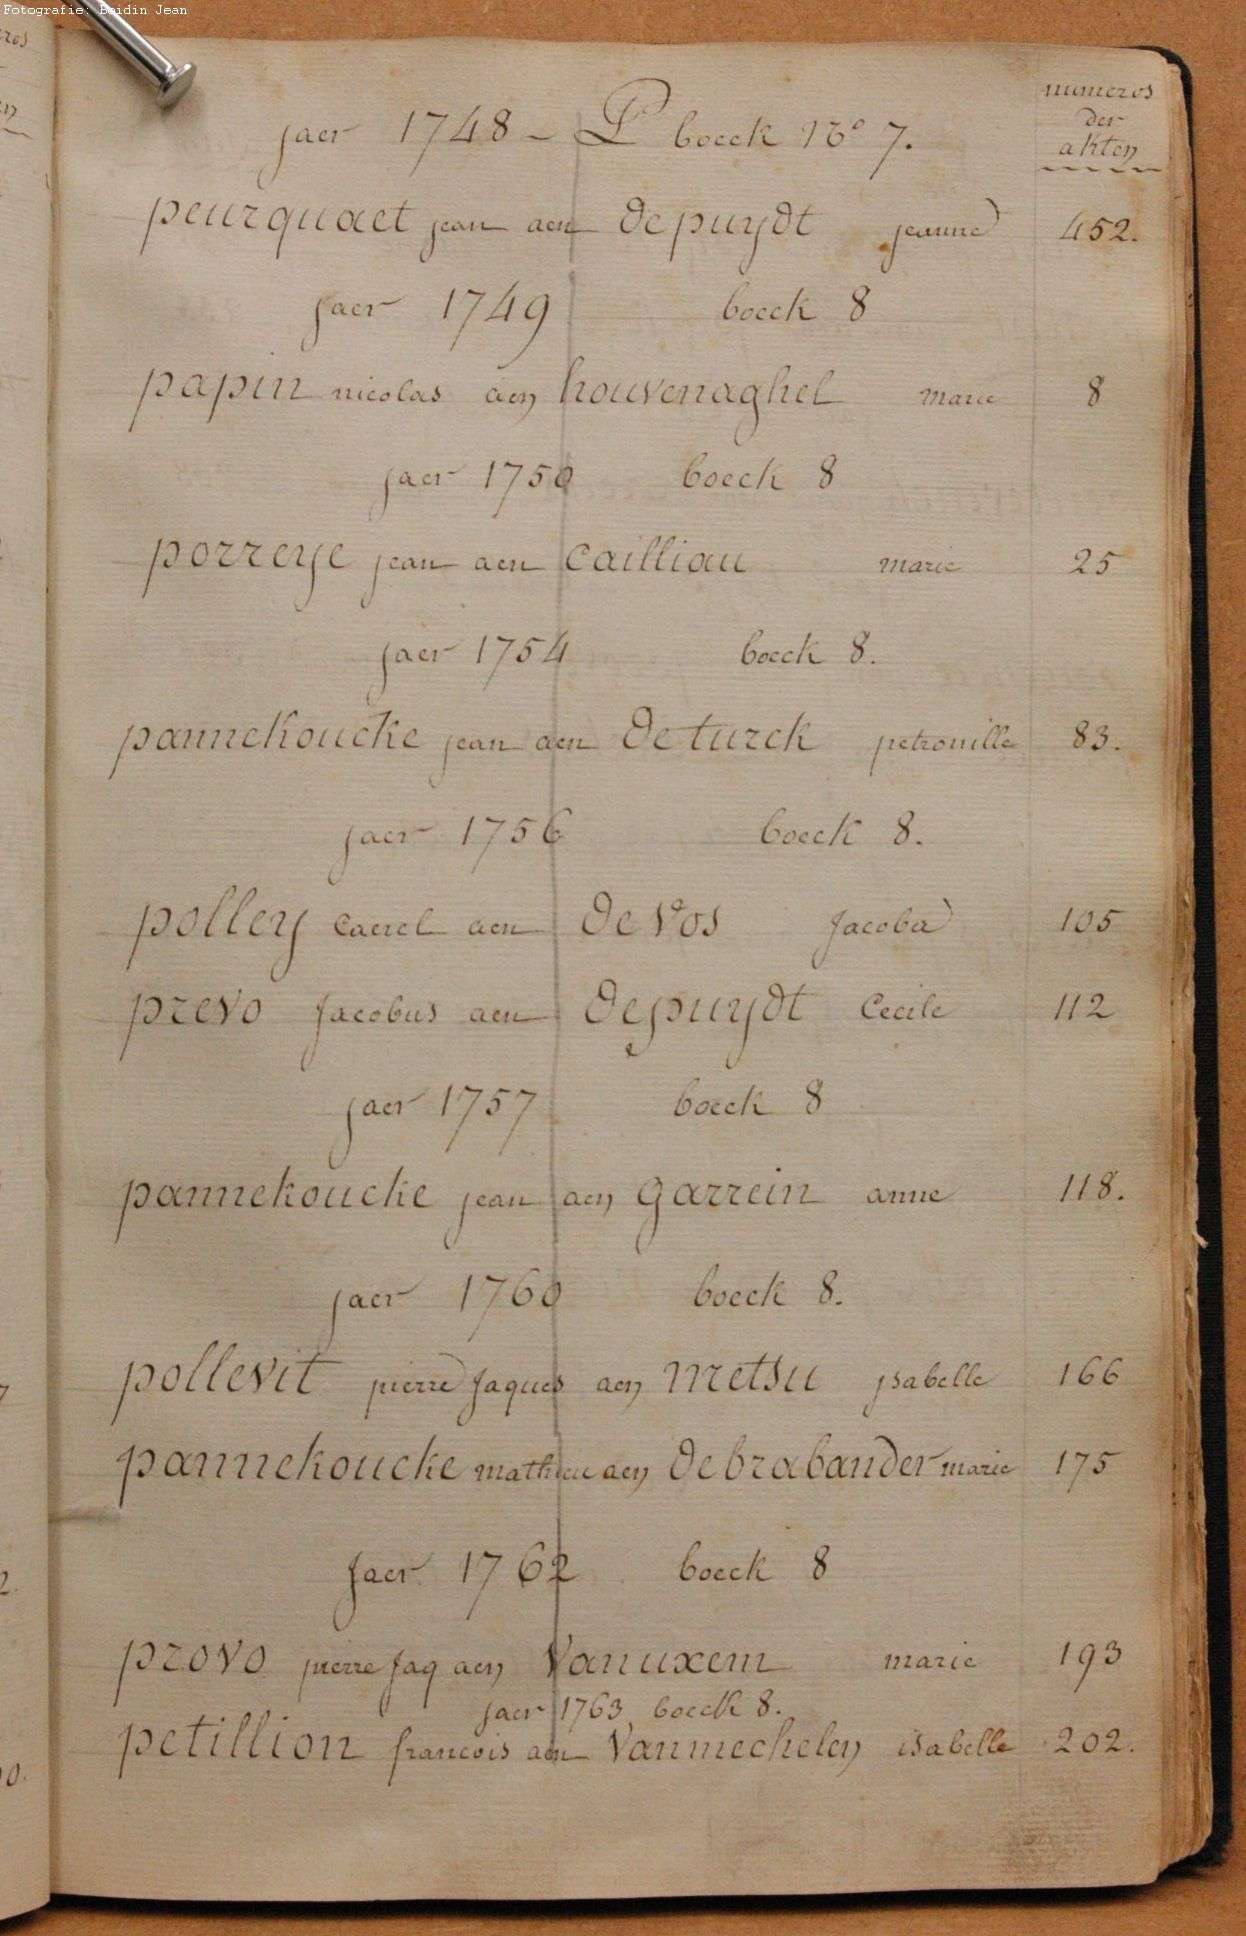 Fotografie: Beidin Jean
numeros
der
akten
jaer 1748 - P boeck No 7.
peurquaet jean aen depuydt jeanne 452.
jaer 1749 boeck 8
papin nicolas aen houvenaghel marie 8
jaer 1750 boeck 8
porreye jean aen cailliau marie 25
jaer 1754 boeck 8.
pannekoucke jean aen deturck petronille 83.
jaer 1756 boeck 8.
polley Caerel aen de vos Jacoba 105
prevo Jacobus aen depuydt Cecile 112
jaer 1757 boeck 8
pannekoucke jean aen garrein anne 118.
jaer 1760 boeck 8.
pollevit pierre Jaques aen metsu ysabelle 166
pannekoucke mathieu aen debrabander marie 175
Jaer 1762 boeck 8
provo pierre Jaq aen Vanuxem marie 193
jaer 1763 boeck 8.
petillion francois aen Vanmechelen isabelle 202.